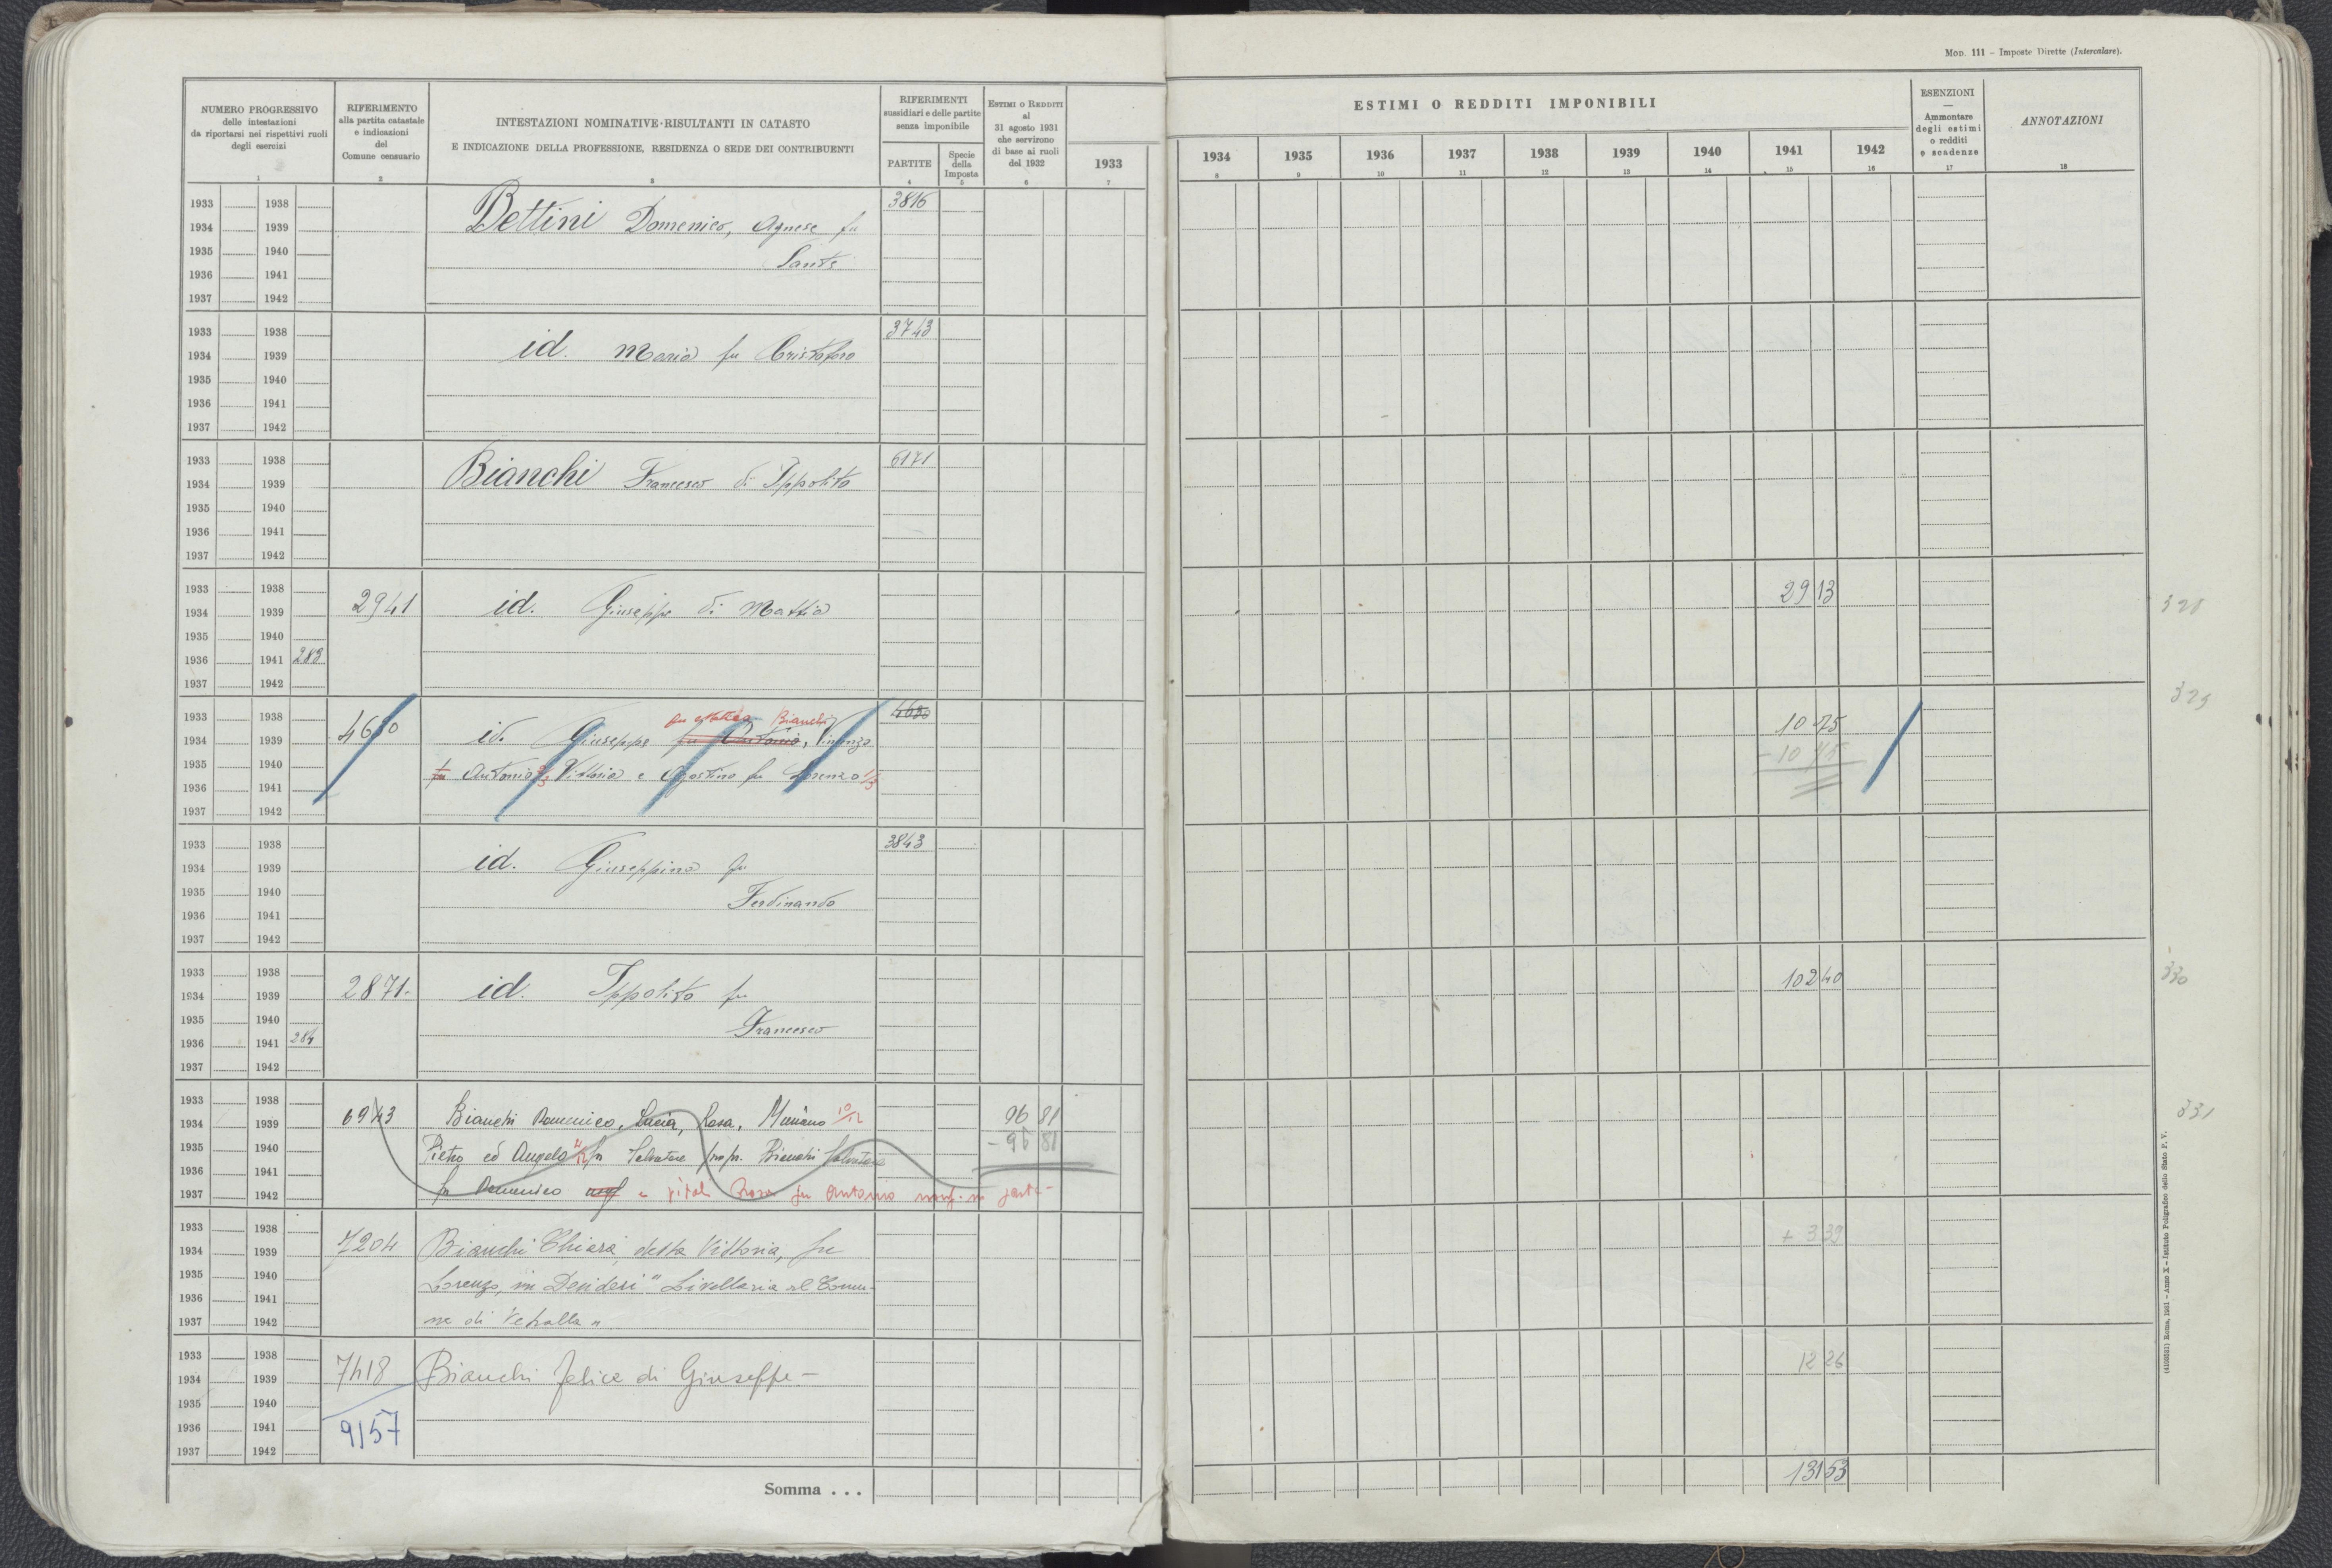 Mod. 111 - Imposte Dirette (Intercalare).
NUMERO PROGRESSIVO
delle intestazioni
da riportarsi nei rispettivi ruoli
degli esercizi
1
RIFERIMENTO
alla partita catastale
e indicazioni
del
Comune censuario
2
INTESTAZIONI NOMINATIVE RISULTANTI IN CATASTO
E INDICAZIONE DELLA PROFESSIONE, RESIDENZA O SEDE DEI CONTRIBUENTI
3
RIFERIMENTI
sussidiari e delle partite
senza imponibile
PARTITE
4
Specie
della
Imposta
5
ESTIMI O REDDITI
al
31 agosto 1931
che servirono
di base ai ruoli
del 1932
6
1933
7
ESTIMI O REDDITI IMPONIBILI
1934 1935 1936 1937 1938 1939 1940 1941 1942
8 9 10 11 12 13 14 15 16
ESENZIONI
—
Ammontare
degli estimi
o redditi
e scadenze
17
ANNOTAZIONI
18
1933 1938 3816
1934 1939 Bettini Domenico, Agnese fu
1935 1940 Sante
1936 1941
1937 1942
1933 1938 3743
1934 1939 id. Maria fu Cristoforo
1935 1940
1936 1941
1937 1942
1933 1938 6171
1934 1939 Bianchi Francesco di Ippolito
1935 1940
1936 1941
1937 1942
1933 1938 29 13
1934 1939 2941 id. Giuseppe di Mattia
1935 1940
1936 1941 283
1937 1942
329
1933 1938 Bianchi 4680 10 75
1934 1939 4680 id. Giuseppe fu Antonio, Vincenzo
1935 1940 fu Antonio 2/3 Vittoria e Agostino fu Lorenzo 1/3 - 10 75
1936 1941
1937 1942
1933 1938 3843
1934 1939 id. Giuseppina fu
1935 1940 Ferdinando
1936 1941
1937 1942
1933 1938 102 40 330
1934 1939 2871. id. Ippolito fu
1935 1940 Francesco
1936 1941 284
1937 1942
1933 1938
1934 1939 6943 Bianchi Domenico, Lucia, Rosa, Mariano 10/12 96 81 331
1935 1940 Pietro ed Angela fu Salvatore prop. Bianchi Salvatore - 96 81
1936 1941
1937 1942 fu Domenico usuf e Rosa fu Antonio
1933 1938 + 3 39
1934 1939 7204 Bianchi Chiara, detta Vittoria, fu
1935 1940 Lorenzo, in Desideri " Livellaria al Comu-
1936 1941
1937 1942 ne di Vetralla "
1933 1938 12 26
1934 1939 7418 Bianchi Felice di Giuseppe -
1935 1940
1936 1941 9157
1937 1942
Somma . . . 131 53
(4103531) Roma, 1931 - Anno X - Istituto Poligrafico dello Stato P. V.